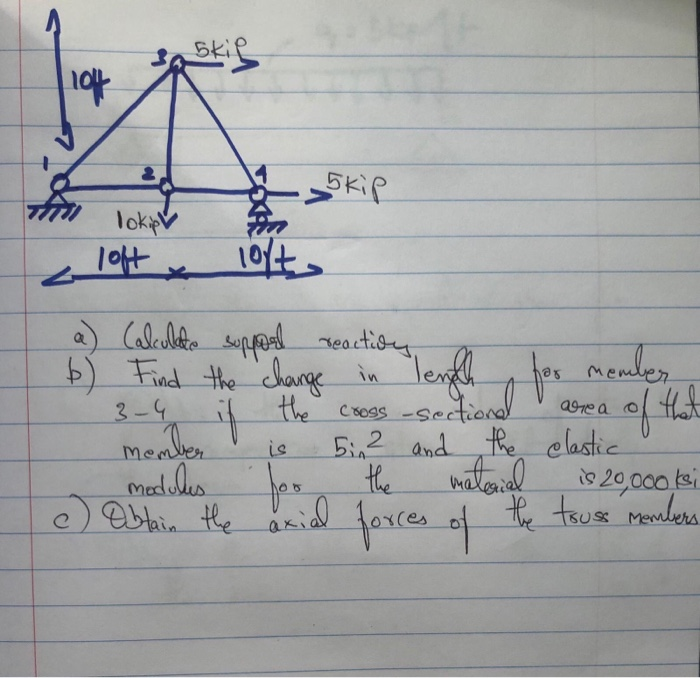 3 5kip
10ft
1 2 4 5kip
10kip
10ft 10ft
a) Calculate support reactions
b) Find the change in length for member
3-4 if the cross-sectional area of that
member is 5in² and the elastic
modulus for the material is 20,000 ksi
c) Obtain the axial forces of the truss members